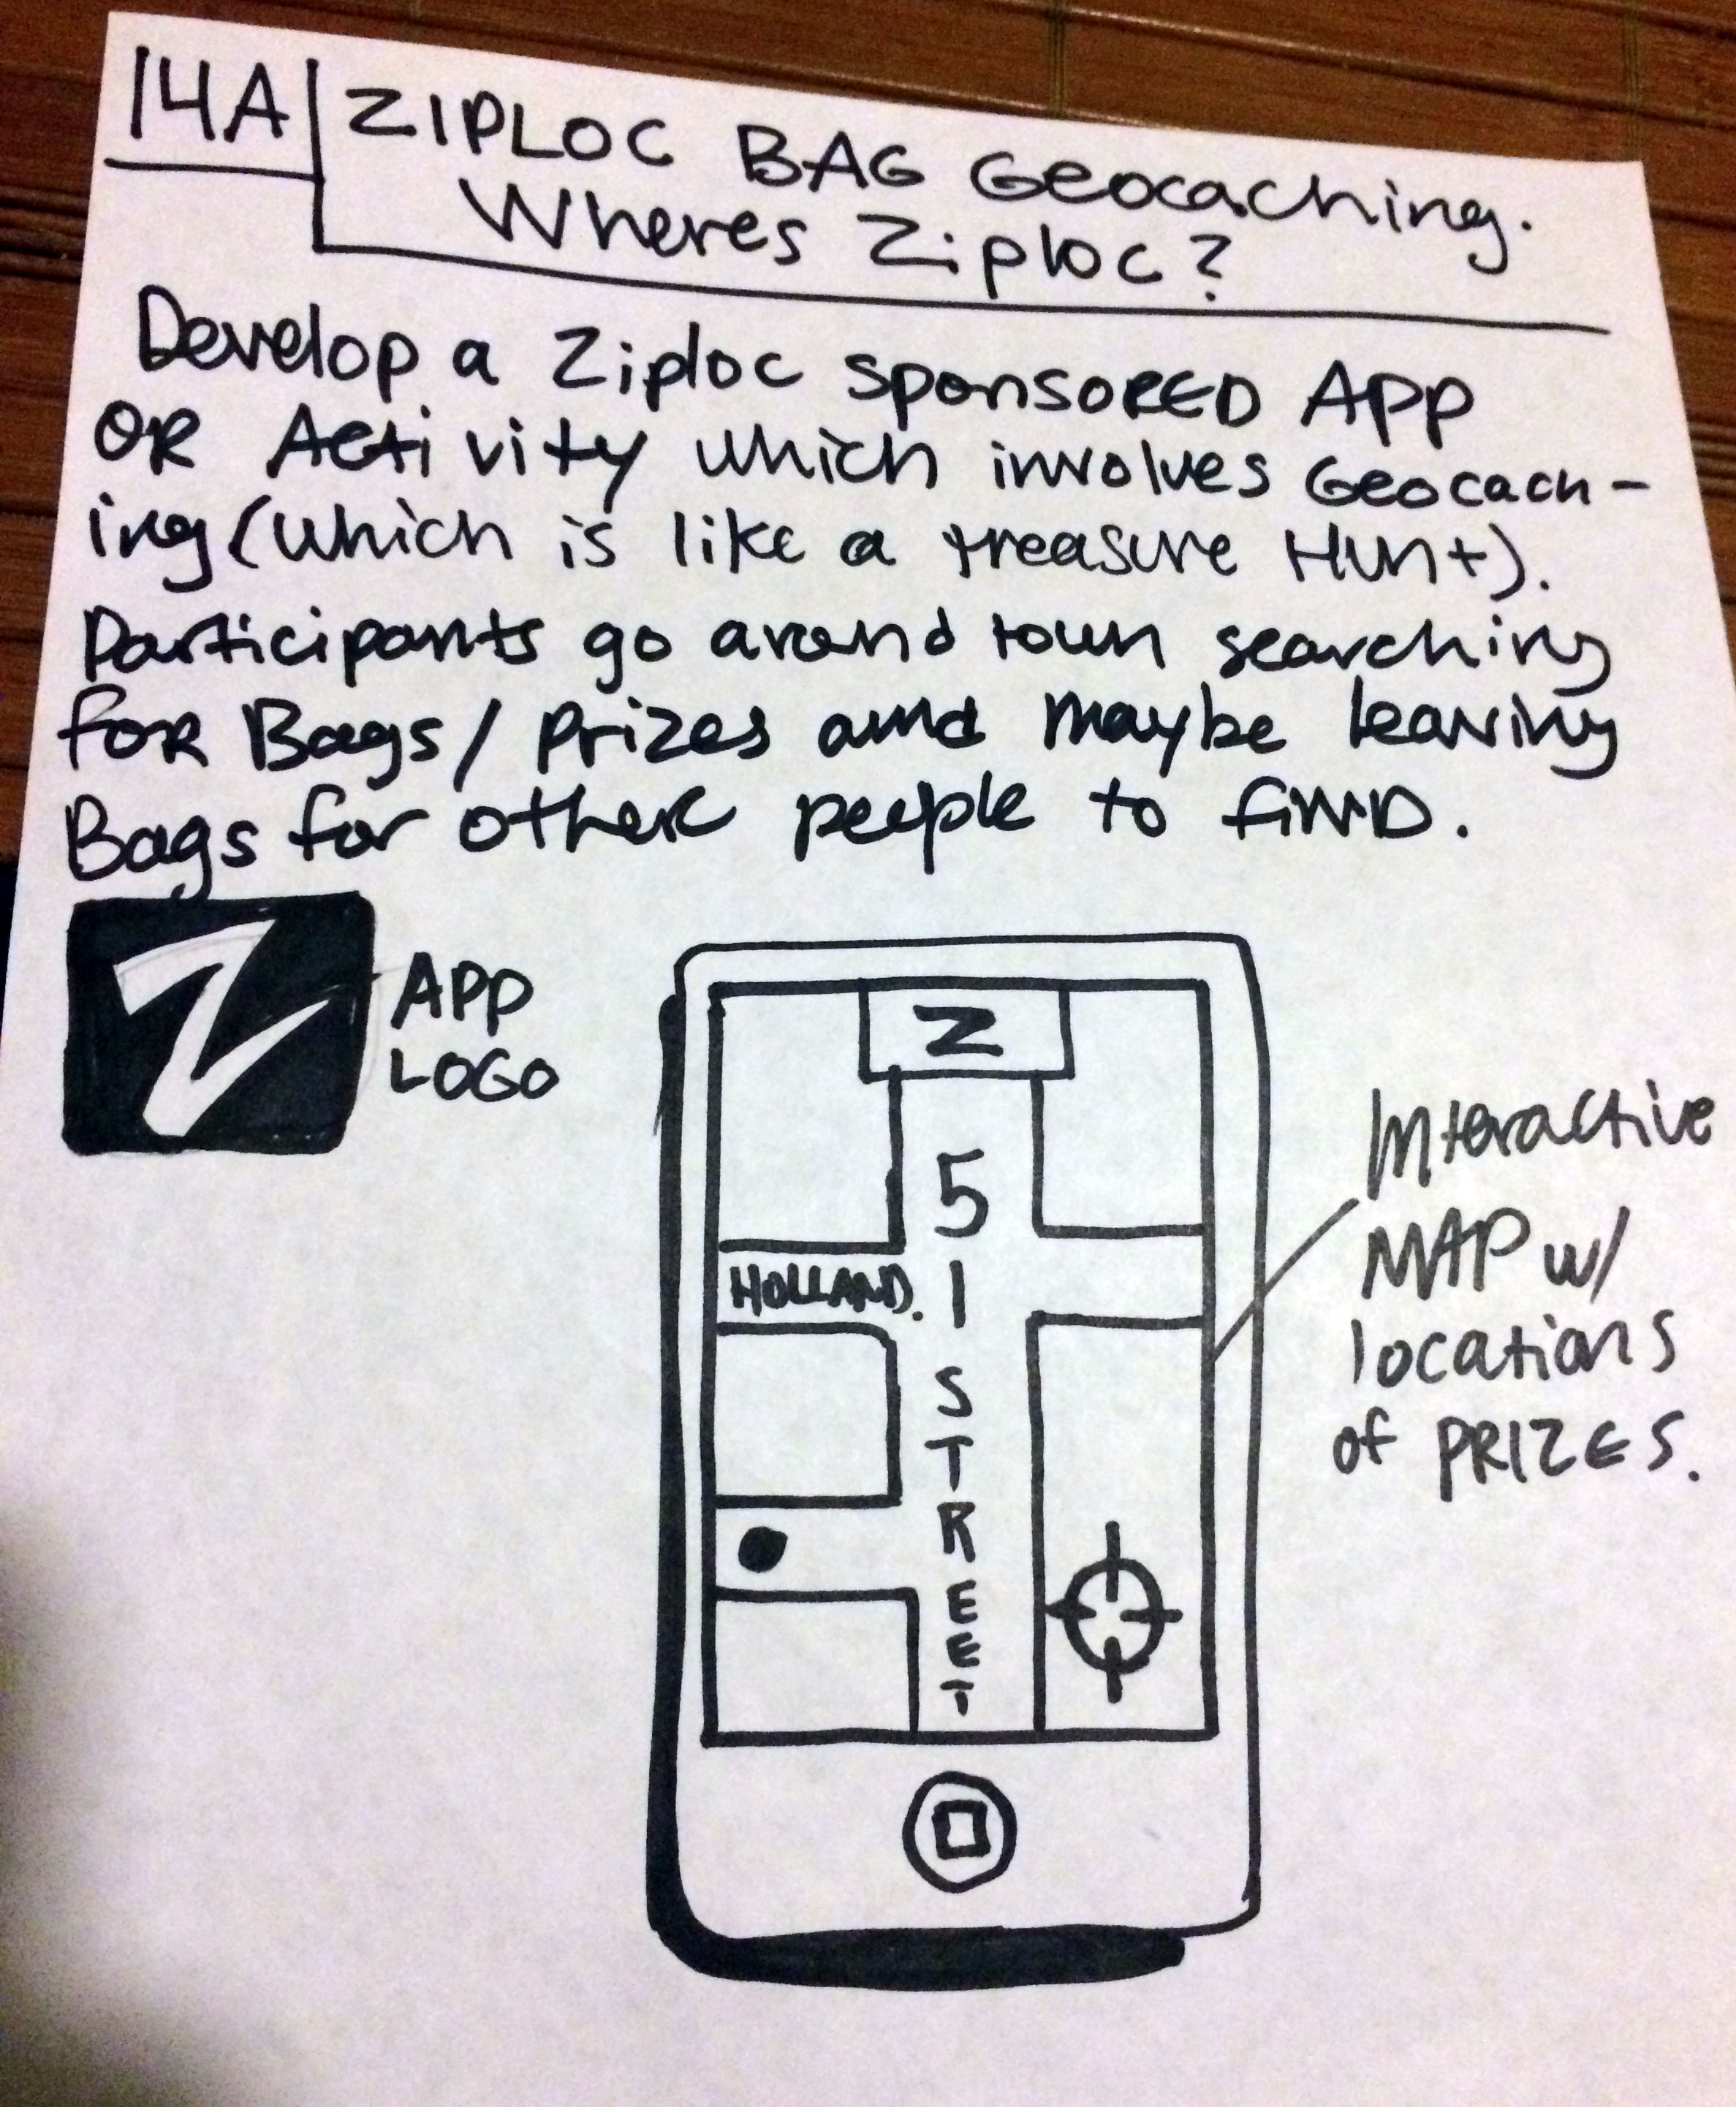 14A
ZIPLOC BAG Geocaching.
Wheres Ziploc?
Develop a Ziploc sponsoRED APP
OR Activity which involves Geocach-
ing (which is like a treasure Hunt).
Participants go around town searching
foR Bags/ Prizes amd maybe leaving
Bags for other people to fiND.
Z
APP
LOGO
Z
51 STREET
HOLLAND.
Interactive
MAP w/
locations
of PRIZES.